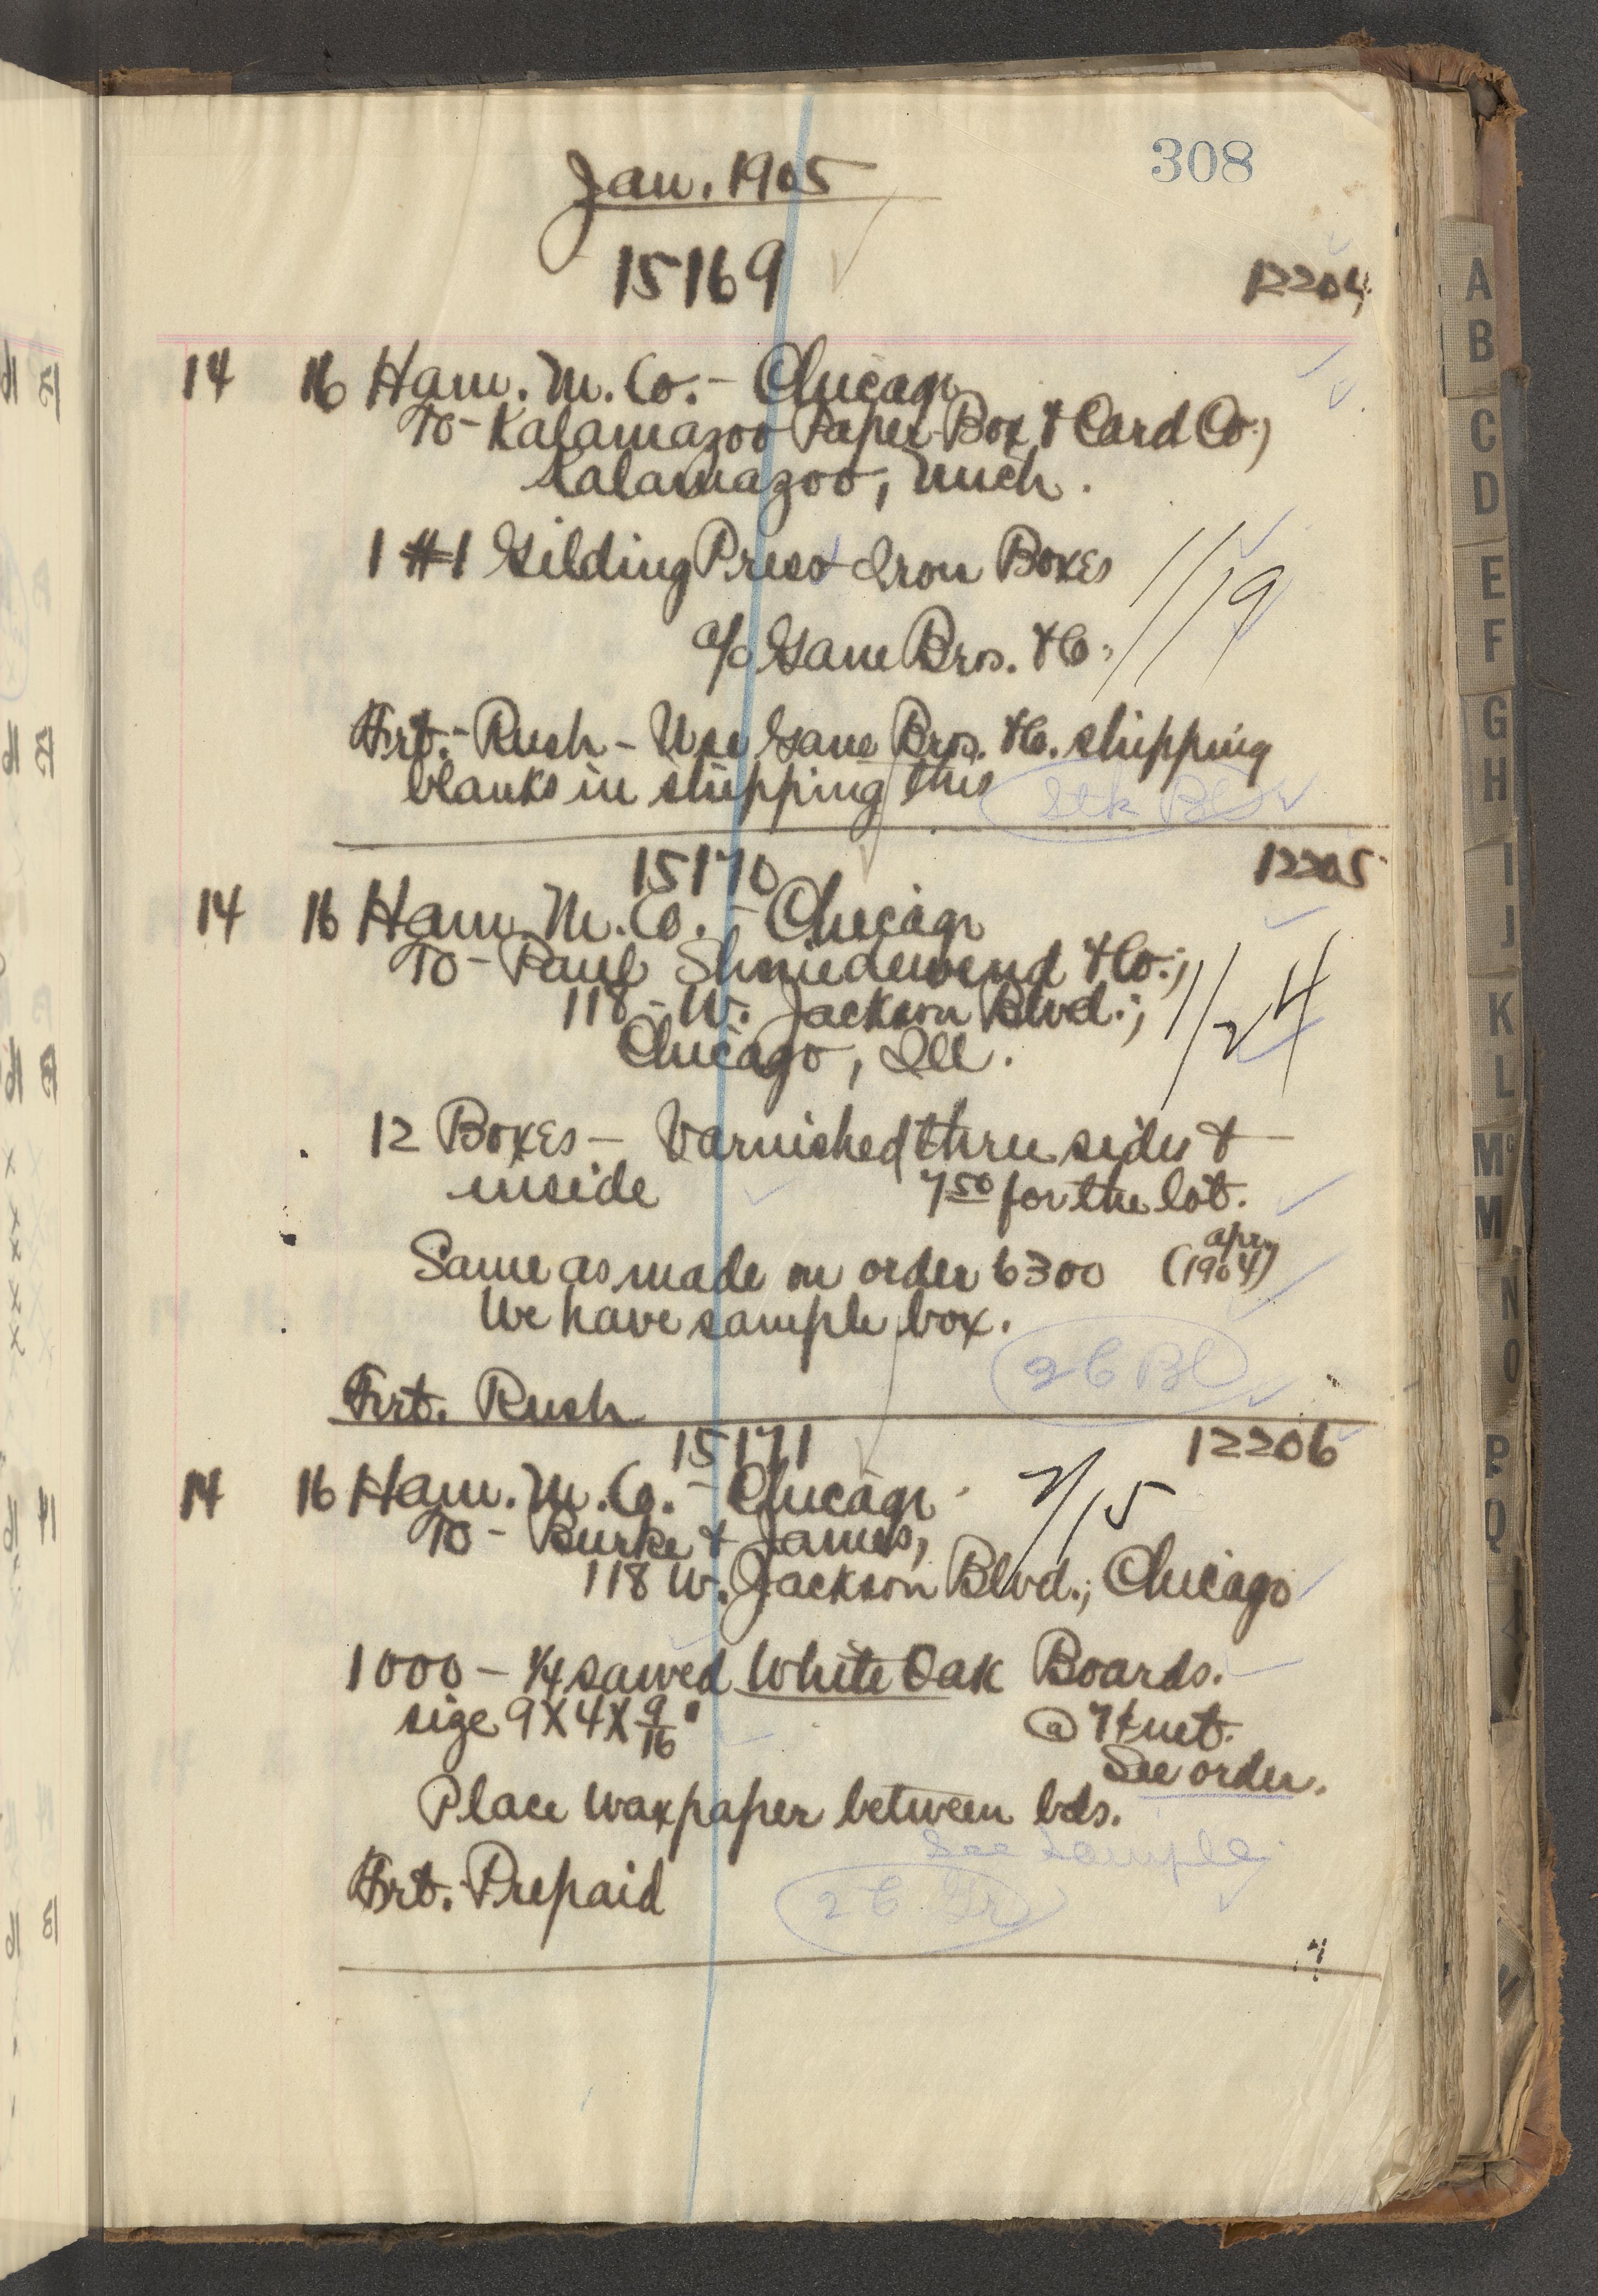 308
Jan. 1905
15169 12204
14 16 Ham. M. Co. - Chicago
To - Kalamazoo Paper Box & Card Co.,
Kalamazoo, Mich.
1 #1 Gilding Press & Iron Boxes
1/19
a/c Gane Bros. & Co.
Frt. - Rush - Use Gane Bros. & Co. shipping
blanks in shipping this
Stk Bl
15170 12205
14 16 Ham. M. Co. - Chicago
To - Paul Shniedewend & Co.;
118 - W. Jackson Blvd.;
1/24
Chicago, Ill.
12 Boxes - Varnished thru sides &
inside 7 50 for the lot.
Same as made on order 6300 (Apr. 1904)
We have sample box.
26 Bl
Frt. Rush
15171 12206
14 16 Ham. M. Co. - Chicago
2/15
To - Burke & James,
118 W. Jackson Blvd.; Chicago
1000 - 1/4 sawed White Oak Boards.
size 9 X 4 X 9/16" @ 7¢ net.
See order.
Place wax paper between bds.
See Sample
Frt. Prepaid
A
B
C
D
E
F
G
H
I
J
K
L
Mc
M
N
O
P
Q